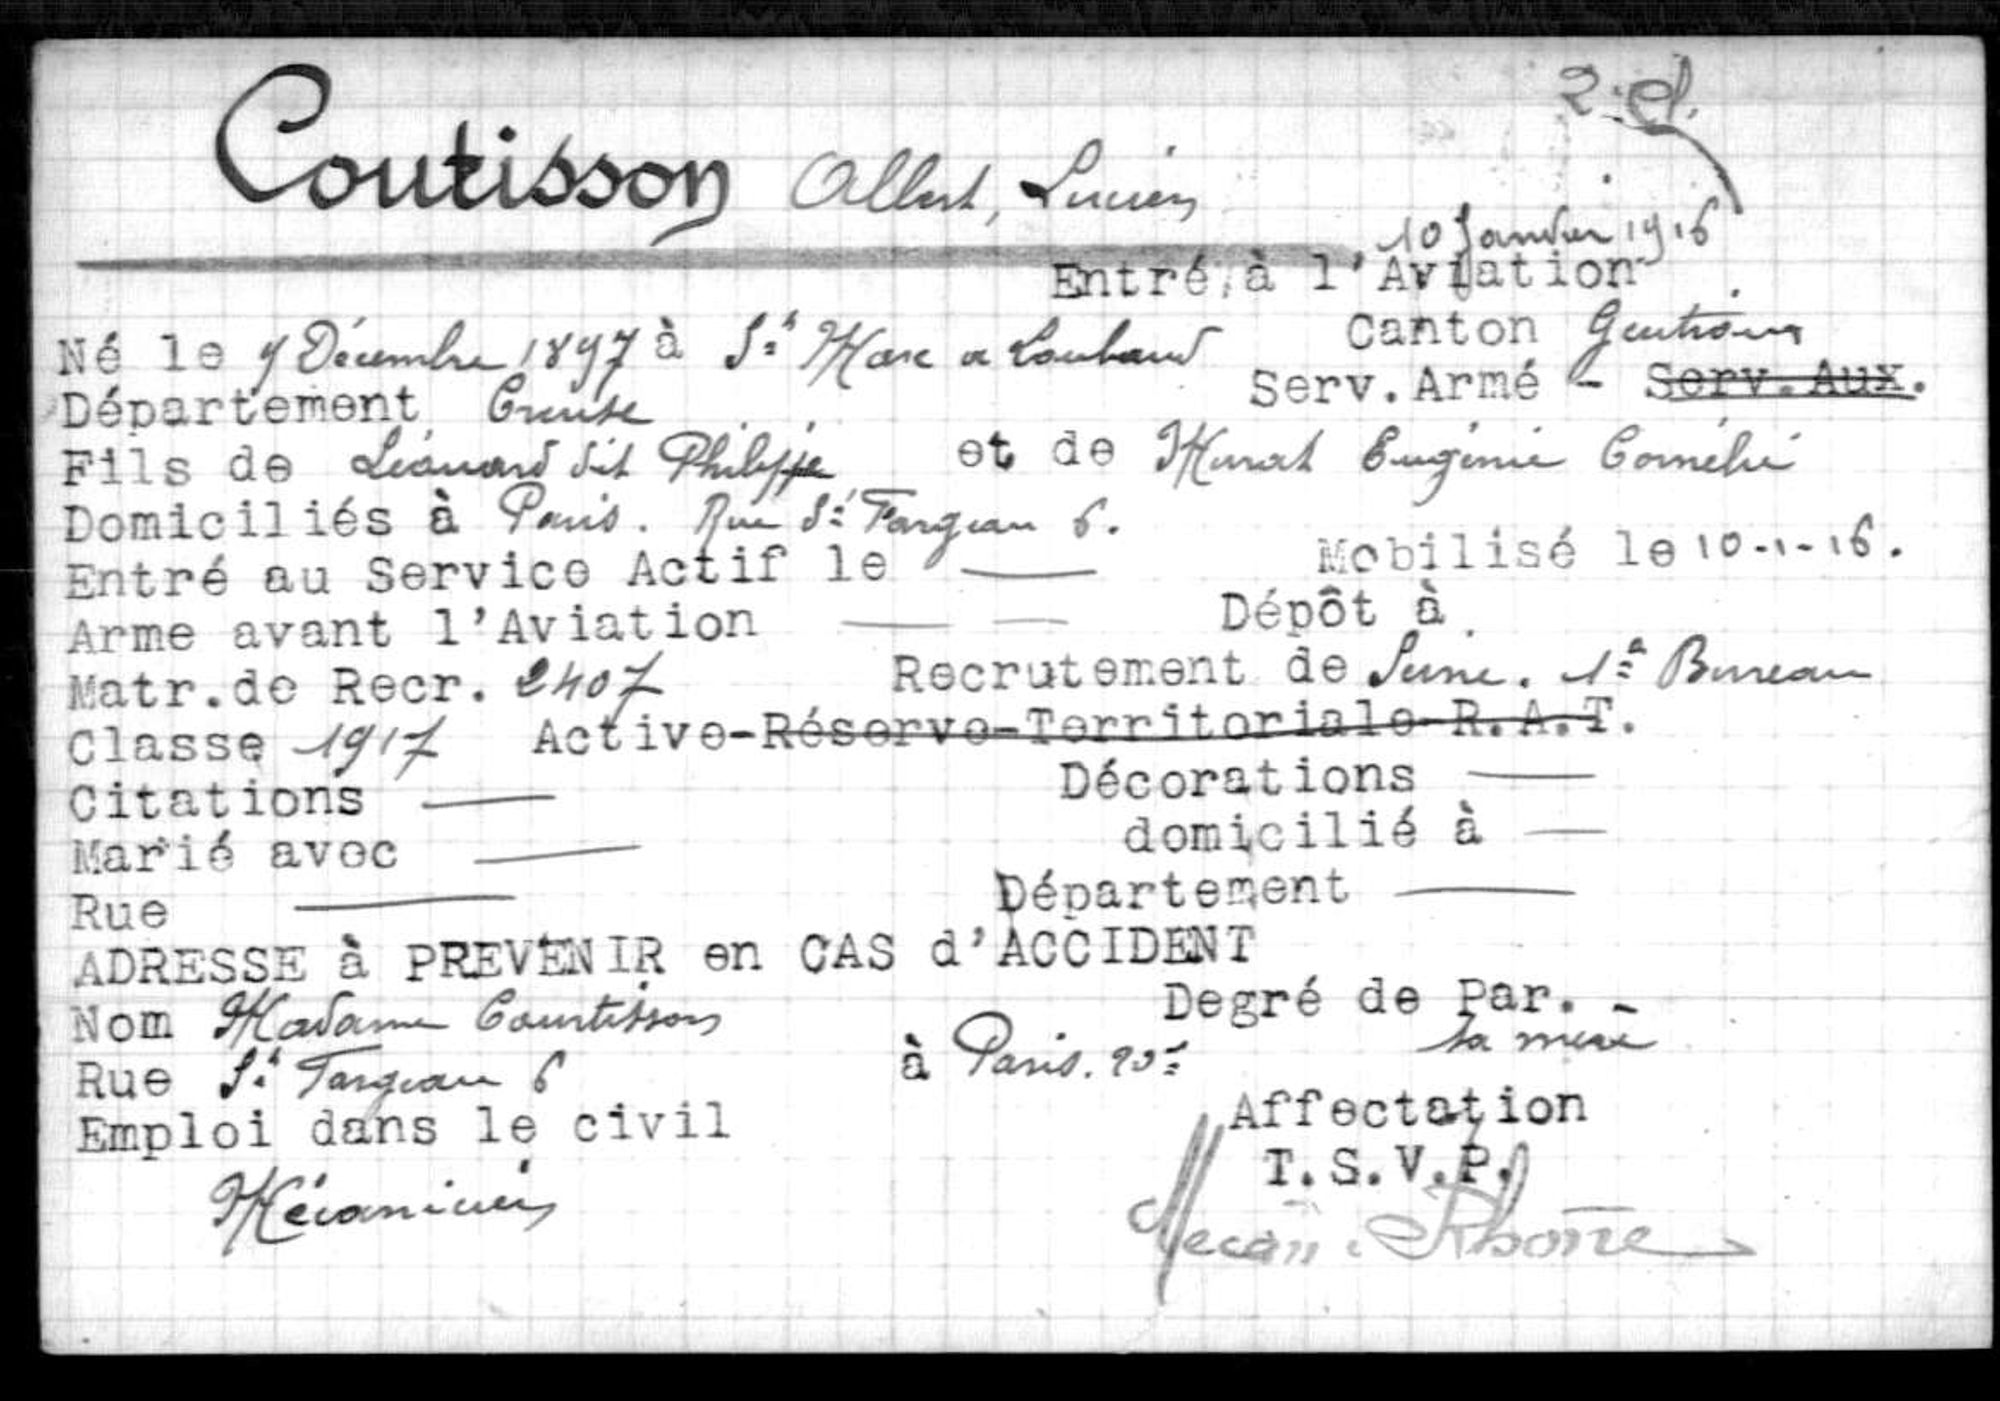 2e cl.
Coutisson Albert, Lucien
10 Janvier 1916
Entré à l'Aviation
Né le 9 Décembre 1897 à St Marc a Loubaud Canton Gentioux
Département Creuse Serv. Armé - Serv. Aux.
Fils de Léonard dit Philippe et de Murat Eugénie Cornélie
Domiciliés à Paris. Rue St Fargeau 6.
Entré au Service Actif le — Mobilisé le 10-1-16.
Arme avant l'Aviation — — Dépôt à
Matr. de Recr. 2407 Recrutement de Seine. 1er Bureau
Classe 1917 Active-Réserve-Territoriale-R.A.T.
Citations — Décorations —
Marié avec — domicilié à —
Rue — Département —
ADRESSE à PREVENIR en CAS d'ACCIDENT
Nom Madame Courtisson Degré de Par. -
sa mère
Rue St Fargeau 6 à Paris. 20e
Emploi dans le civil Affectation
T.S.V.P.
Mécanicien
Mecan. Rhône